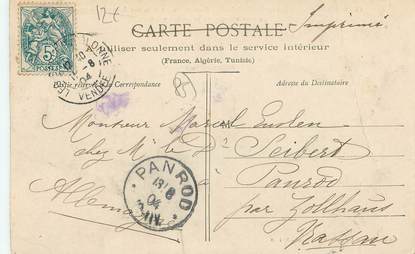 12€
CARTE POSTALE
Imprimé
utiliser seulement dans le service intérieur
(France, Algérie, Tunisie)
5c
ORNE
8
04
VENDÉE
Partie réservée à la Correspondance
Adresse du Destinataire
Monsieur Marcel
chez M. le Dr Seibert
Panrod
par Zollhaus
Nassau
Allemagne
PANROD
8
04